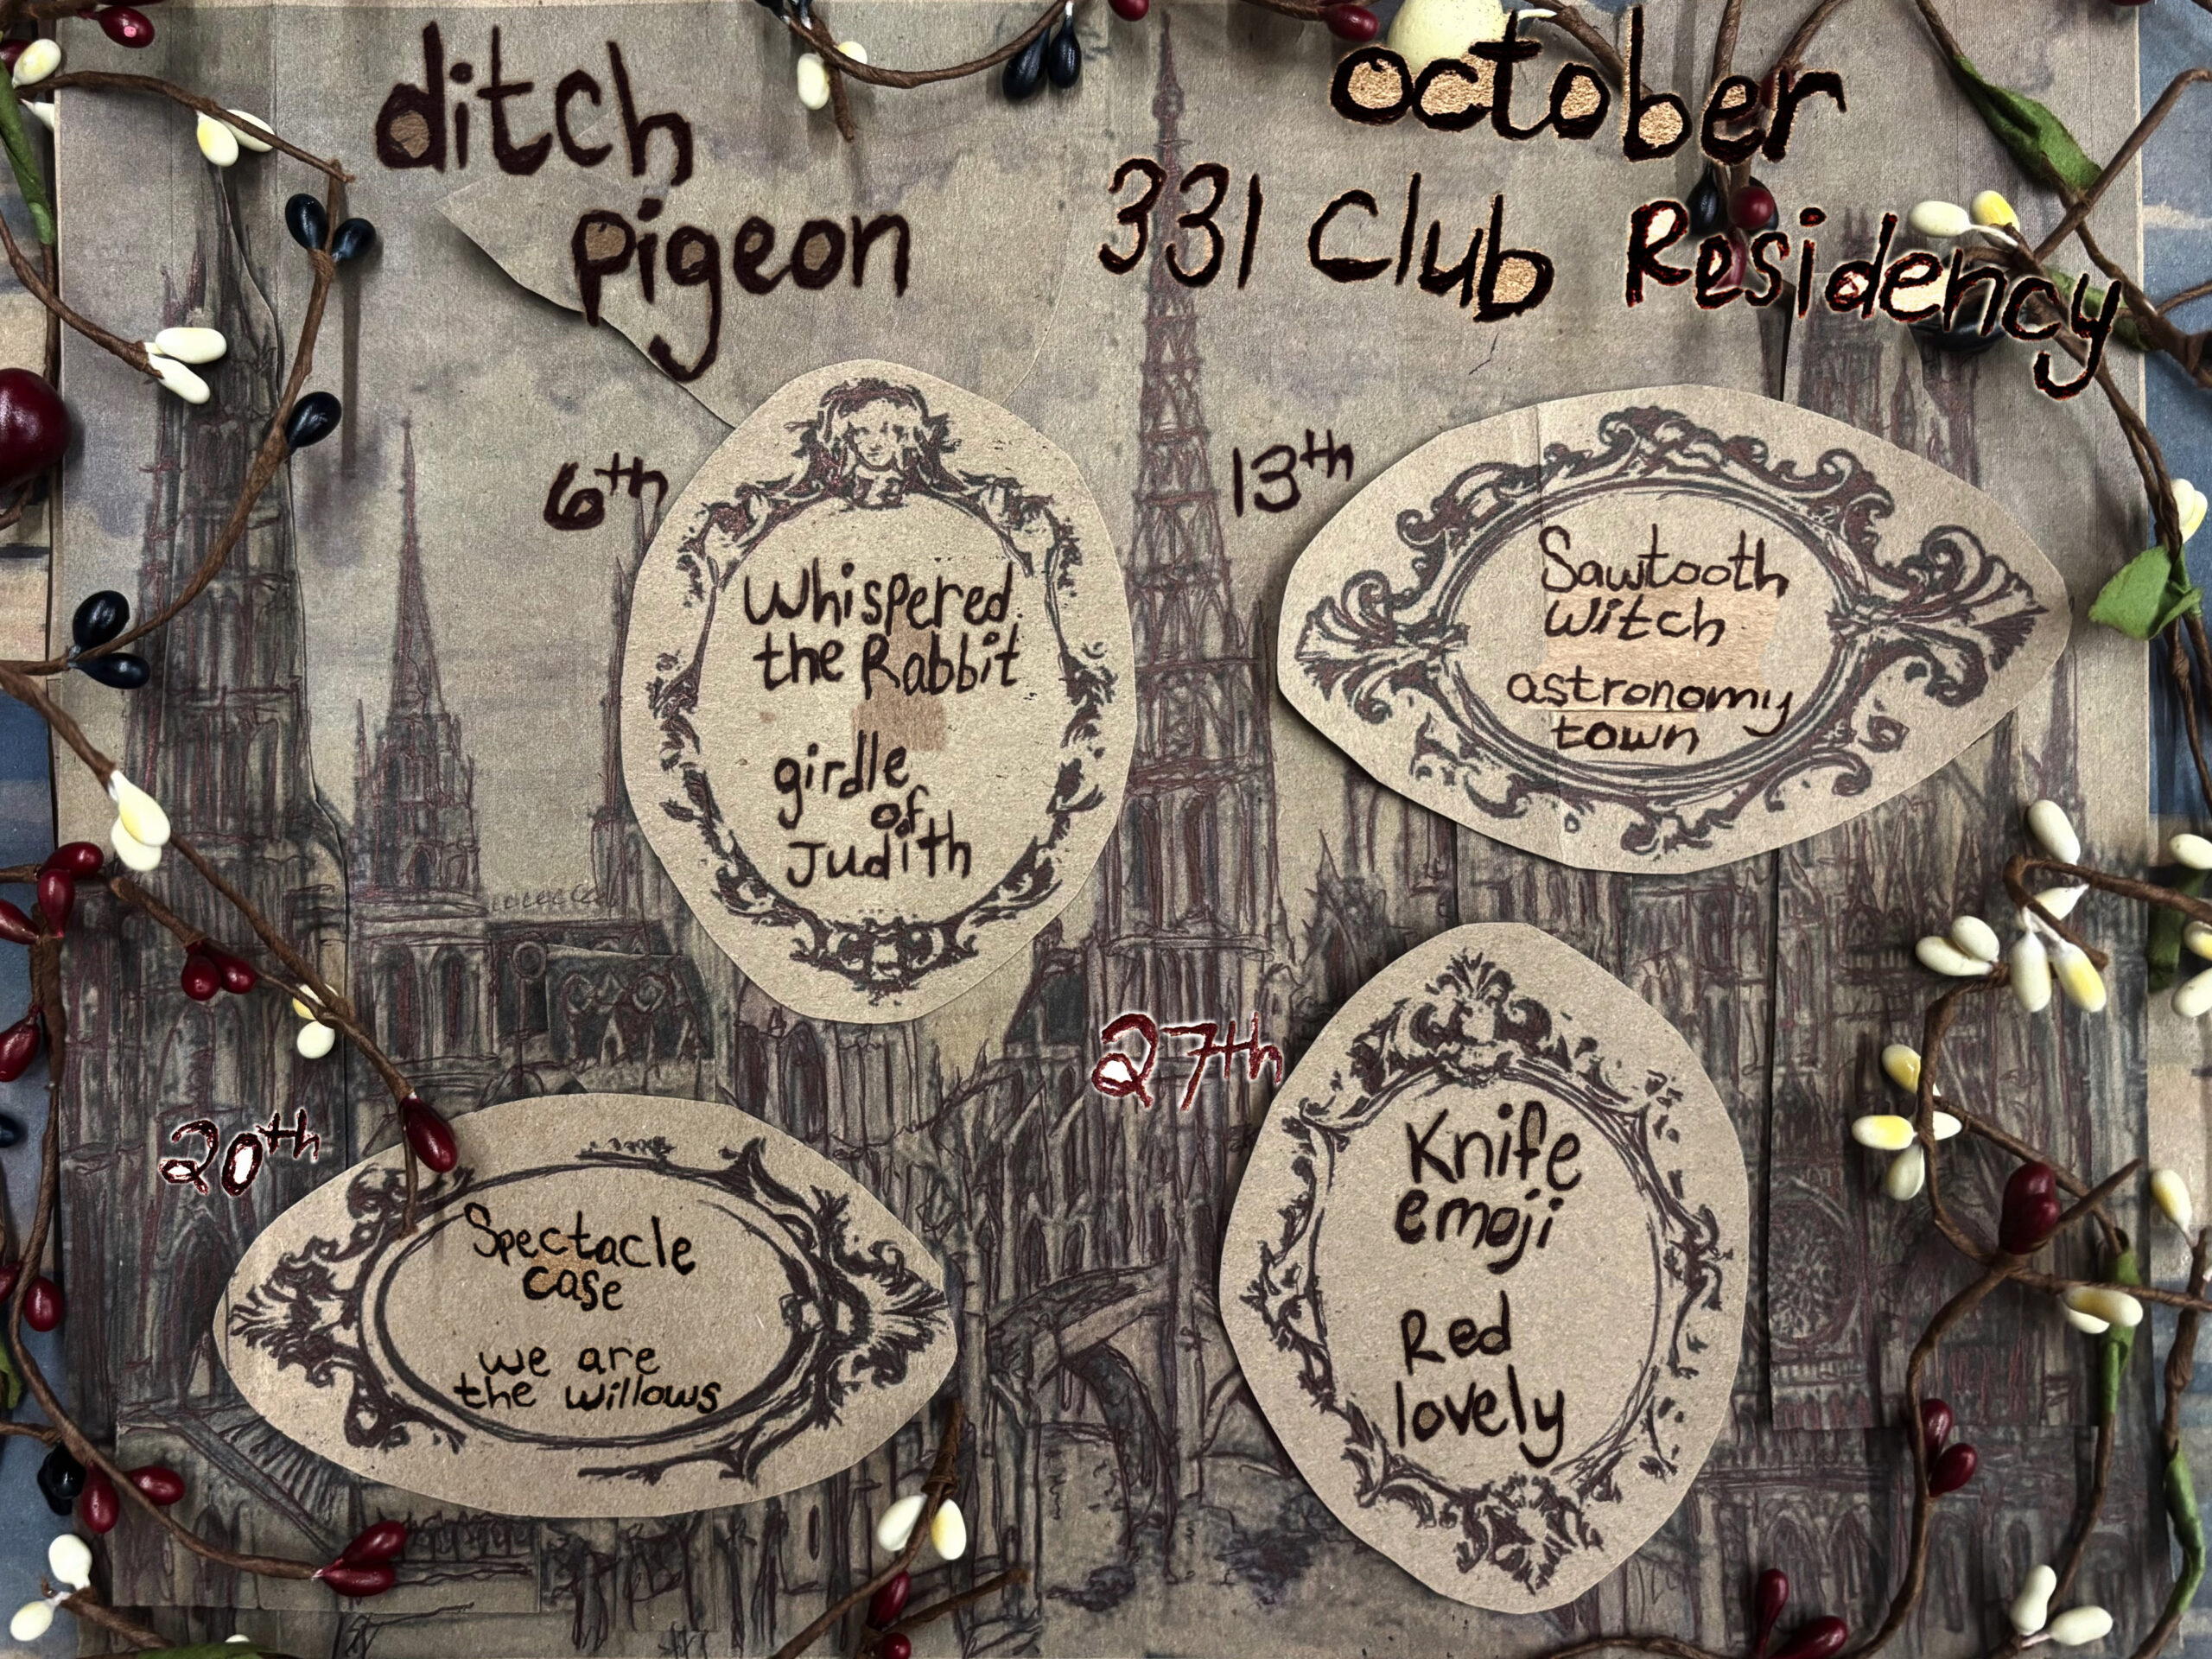 ditch
pigeon
october
331 Club Residency
6th
Whispered
the Rabbit
girdle
of
Judith
13th
Sawtooth
Witch
astronomy
town
20th
Spectacle
case
we are
the willows
27th
Knife
emoji
Red
lovely